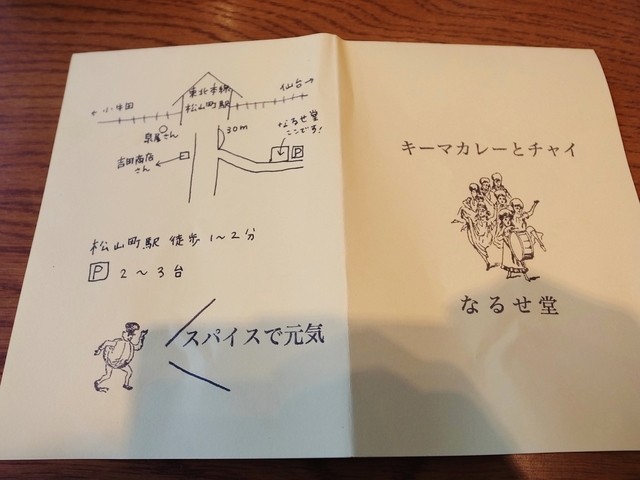 東北本線
松山町駅
仙台→
←小牛田
泉屋さん
30m
なるせ堂
ここです!
吉田商店
さん
P
松山町駅 徒歩1~2分
P 2~3台
スパイスで元気
キーマカレーとチャイ
なるせ堂